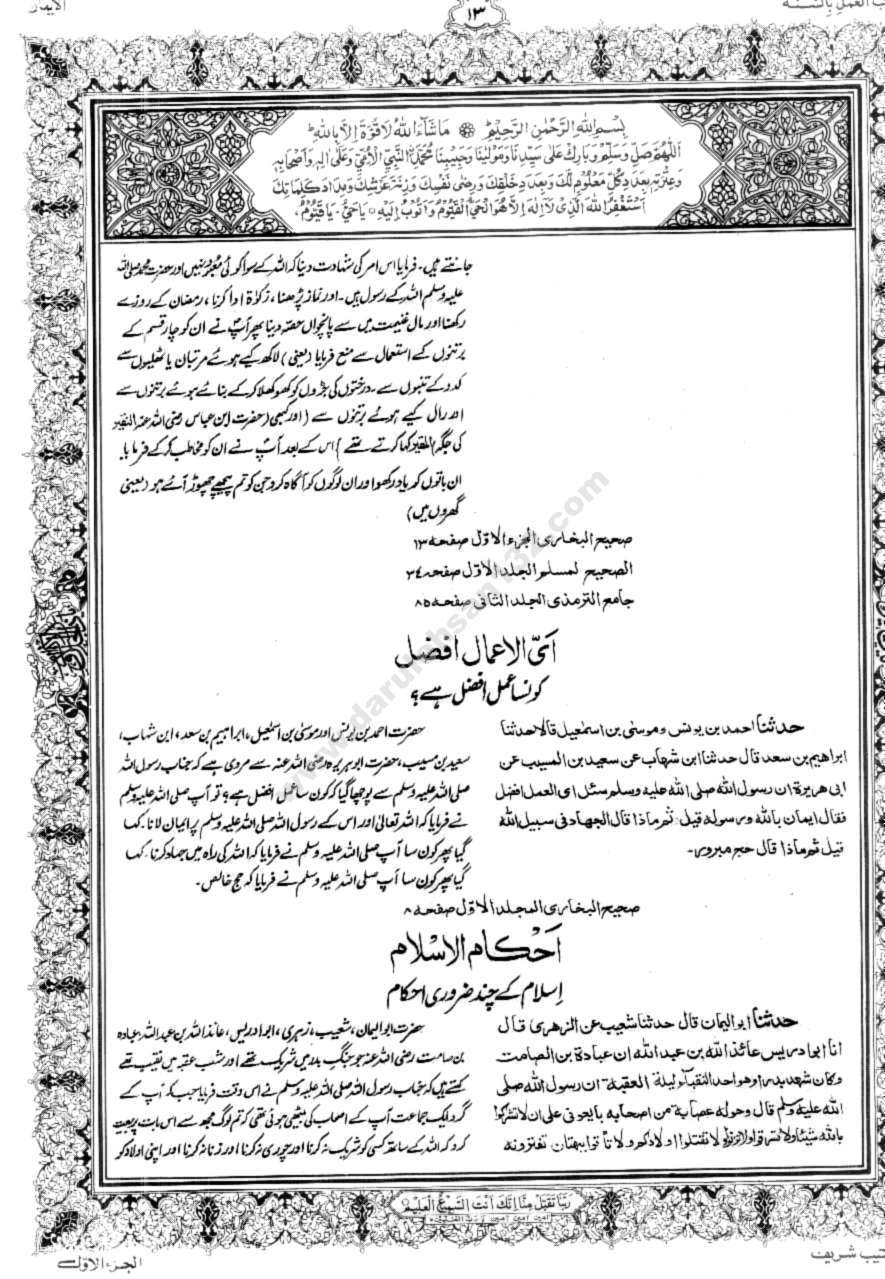 ب العمل بالسنة
۱۳
الایمان
بِسْمِ اللهِ الرَّحْمٰنِ الرَّحِيْمِ مَا شَآءَ اللهُ لَا قُوَّةَ اِلَّا بِاللهِ
اَللّٰهُمَّ صَلِّ وَسَلِّمْ وَبَارِكْ عَلٰى سَيِّدِنَا وَمَوْلَيْنَا وَحَبِيْبِنَا مُحَمَّدِ نِ النَّبِيِّ الْاُمِّيِّ وَعَلٰى اٰلِهٖ وَاَصْحَابِهٖ
وَعِتْرَتِهٖ بِعَدَدِ كُلِّ مَعْلُوْمٍ لَّكَ وَبِعَدَدِ خَلْقِكَ وَرِضٰى نَفْسِكَ وَزِنَةَ عَرْشِكَ وَمِدَادَ كَلِمَاتِكَ
اَسْتَغْفِرُ اللهَ الَّذِىْ لَآ اِلٰهَ اِلَّا هُوَ الْحَىُّ الْقَيُّوْمُ وَاَتُوْبُ اِلَيْهِ يَا حَىُّ يَا قَيُّوْمُ
جانتے ہیں۔ فرمایا اس امر کی شہادت دینا کہ اللہ کے سوا کوئی معبود نہیں اور حضرت محمد صلی اللہ
علیہ وسلم اللہ کے رسول ہیں۔ اور نماز پڑھنا، زکوٰۃ ادا کرنا، رمضان کے روزے
رکھنا اور مال غنیمت میں سے پانچواں حصہ دینا پھر آپؐ نے ان کو چار قسم کے
برتنوں کے استعمال سے منع فرمایا (یعنی) لاکھ کیے ہوئے مرتبان یا ٹھلیوں سے
کدو کے تنبوں سے۔ درختوں کی جڑوں کو کھوکھلا کر کے بنائے ہوئے برتنوں سے
اور رال کیے ہوئے برتنوں سے (اور کبھی (حضرت ابن عباس رضی اللہ عنہ النقیر
کی جگہ المقیر کہا کرتے تھے) اس کے بعد آپؐ نے ان کو مخاطب کر کے فرمایا
ان باتوں کو یاد رکھو اور ان لوگوں کو آگاہ کردو جن کو تم پیچھے چھوڑ آئے ہو (یعنی
گھروں میں)
صحیح البخاری الجزء الاوّل صفحه ۱۳
الصحیح لمسلم الجلد الاوّل صفحه ۳٤
جامع الترمذی الجلد الثانی صفحه ۸۵
اَیُّ الاعمال افضل
کونسا عمل افضل ہے؟
حدثنا احمد بن یونس وموسیٰ بن اسمٰعیل قالا حدثنا
ابراهیم بن سعد قال حدثنا ابن شهاب عن سعید بن المسیب عن
ابی هریرة ان رسول الله صلی الله علیه وسلم سئل ای العمل افضل
فقال ایمان بالله ورسوله قیل۔ ثم ماذا قال الجهاد فی سبیل الله
قیل ثم ماذا قال حج مبرور۔
حضرت احمد بن یونس اور موسیٰ بن اسمٰعیل، ابراہیم بن سعد، ابن شہاب،
سعید بن مسیب، حضرت ابوہریرہ رضی اللہ عنہ سے مروی ہے کہ جناب رسول اللہ
صلی اللہ علیہ وسلم سے پوچھا گیا کہ کون سا عمل افضل ہے؟ تو آپ صلی اللہ علیہ وسلم
نے فرمایا کہ اللہ تعالیٰ اور اس کے رسول اللہ صلی اللہ علیہ وسلم پر ایمان لانا۔ کہا
گیا پھر کون سا آپ صلی اللہ علیہ وسلم نے فرمایا کہ اللہ کی راہ میں جہاد کرنا۔ کہا
گیا پھر کون سا آپ صلی اللہ علیہ وسلم نے فرمایا کہ حج خالص۔
صحیح البخاری المجلد الاوّل صفحه ۸
اَحْکام الاسْلام
اِسلام کے چند ضروری احکام
حدثنا ابو الیمان قال حدثنا شعیب عن الزهری قال
انا ابو ادریس عائذ الله بن عبد الله ان عبادة بن الصامت
وکان شهد بدرا وهو احد النقباء لیلة العقبة ان رسول الله صلی
الله علیه وسلم قال وحوله عصابة من اصحابه بایعونی علی ان لا تشرکوا
بالله شیئا ولا تسرقوا ولا تزنوا ولا تقتلوا اولادکم ولا تاتوا ببهتان تفترونه
حضرت ابو الیمان، شعیب، زہری، ابو ادریس، عائذ اللہ بن عبداللہ، عبادہ
بن صامت رضی اللہ عنہ جو جنگ بدر میں شریک تھے اور شب عقبہ میں نقیب تھے
کہتے ہیں کہ جناب رسول اللہ صلی اللہ علیہ وسلم نے اس وقت فرمایا جب کہ آپ کے
گرد ایک جماعت آپ کے اصحاب کی بیٹھی ہوئی تھی کہ تم لوگ مجھ سے اس بات پر بیعت
کرو کہ اللہ کے ساتھ کسی کو شریک نہ کرنا اور چوری نہ کرنا اور زنا نہ کرنا اور اپنی اولاد کو
رَبَّنَا تَقَبَّلْ مِنَّا اِنَّكَ اَنْتَ السَّمِيْعُ الْعَلِيْمُ
تیب شریف
الجزء الاوّل